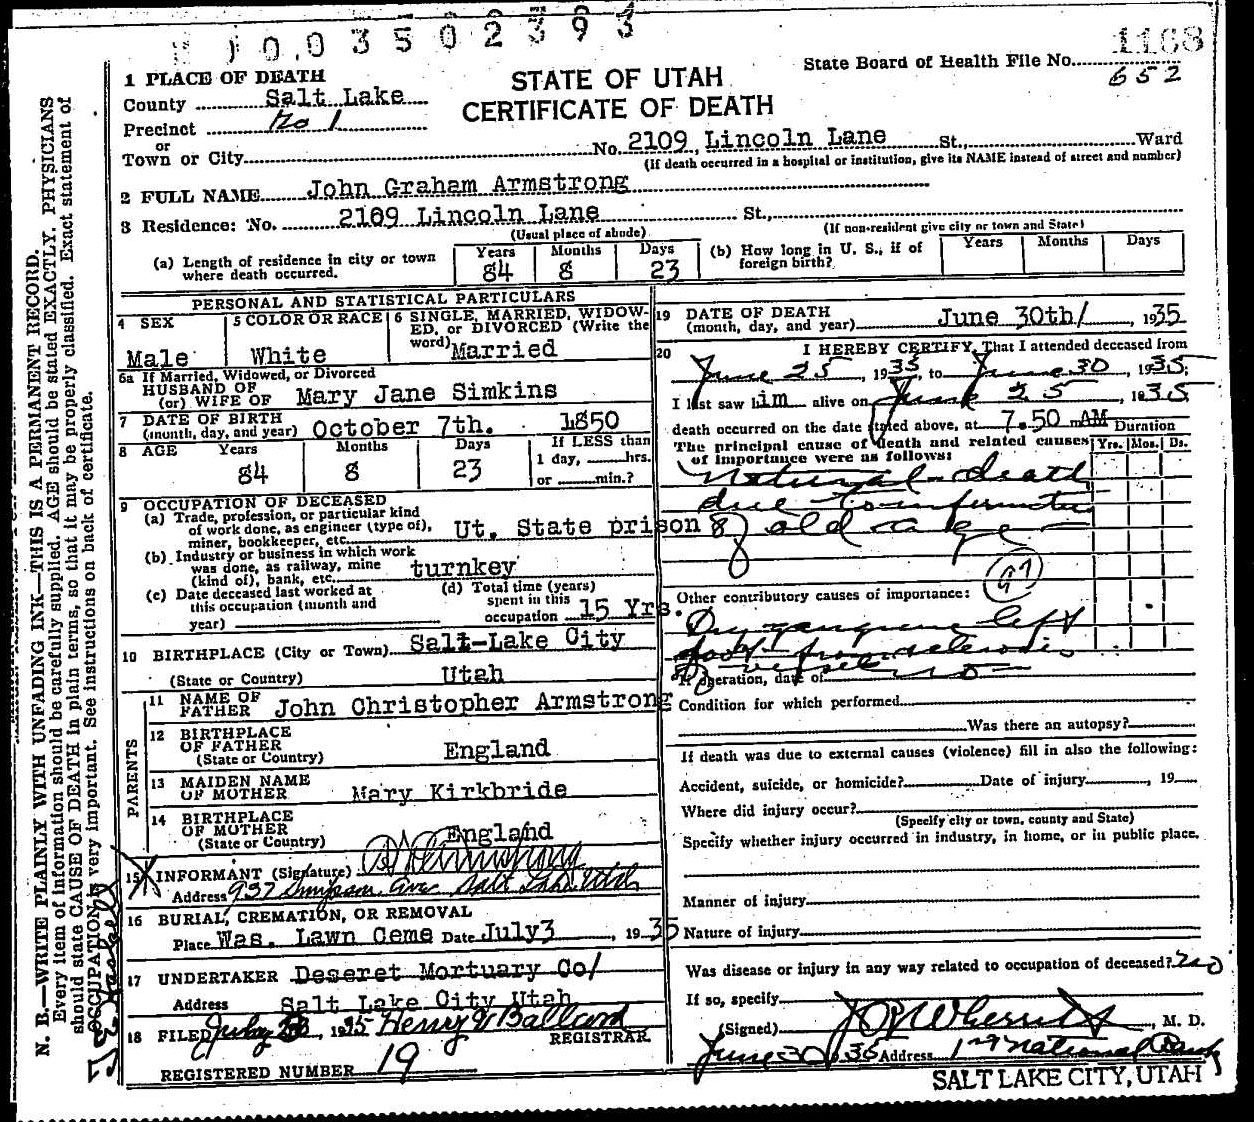 1003502393
1168
State Board of Health File No.
652
1 PLACE OF DEATH
STATE OF UTAH
CERTIFICATE OF DEATH
County Salt Lake
Precinct No 1
or
Town or City No. 2109 Lincoln Lane St., Ward
(If death occurred in a hospital or institution, give its NAME instead of street and number)
2 FULL NAME John Graham Armstrong
3 Residence: No. 2109 Lincoln Lane St.,
(Usual place of abode) (If non-resident give city or town and State)
(a) Length of residence in city or town where death occurred. Years 84 Months 8 Days 23
(b) How long in U. S., if of foreign birth? Years Months Days
PERSONAL AND STATISTICAL PARTICULARS
4 SEX Male
5 COLOR OR RACE White
6 SINGLE, MARRIED, WIDOWED, or DIVORCED (Write the word) Married
6a If Married, Widowed, or Divorced
HUSBAND OF
(or) WIFE OF Mary Jane Simkins
7 DATE OF BIRTH
(month, day, and year) October 7th. 1850
8 AGE Years 84 Months 8 Days 23
If LESS than
1 day, hrs.
or min.?
9 OCCUPATION OF DECEASED
(a) Trade, profession, or particular kind
of work done, as engineer (type of),
miner, bookkeeper, etc. Ut. State prison
(b) Industry or business in which work
was done, as railway, mine
(kind of), bank, etc. turnkey
(c) Date deceased last worked at
this occupation (month and
year)
(d) Total time (years)
spent in this
occupation 15 Yrs.
10 BIRTHPLACE (City or Town) Salt Lake City
(State or Country) Utah
PARENTS
11 NAME OF
FATHER John Christopher Armstrong
12 BIRTHPLACE
OF FATHER
(State or Country) England
13 MAIDEN NAME
OF MOTHER Mary Kirkbride
14 BIRTHPLACE
OF MOTHER
(State or Country) England
15 INFORMANT (Signature) Armstrong
Address 937 Simpson Ave Salt Lake Utah
16 BURIAL, CREMATION, OR REMOVAL
Place Was. Lawn Ceme Date July 3, 1935
17 UNDERTAKER Deseret Mortuary Co/
Address Salt Lake City Utah
18 FILED July 1935 Henry
REGISTRAR
REGISTERED NUMBER 19
19 DATE OF DEATH
(month, day, and year) June 30th/, 1935
20 I HEREBY CERTIFY, That I attended deceased from
June 25, 1935, to June 30, 1935;
I last saw him alive on June 25, 1935
death occurred on the date stated above, at 7.50 m AM
The principal cause of death and related causes
of importance were as follows:
Duration
Yrs. Mos. Ds.
Natural death
due to infirmities
of old age
97
Other contributory causes of importance:
Dry gangrene left
foot from sclerosis
of vessels
If operation, date of no
Condition for which performed
Was there an autopsy?
If death was due to external causes (violence) fill in also the following:
Accident, suicide, or homicide? Date of injury, 19
Where did injury occur?
(Specify city or town, county and State)
Specify whether injury occurred in industry, in home, or in public place.
Manner of injury
Nature of injury
Was disease or injury in any way related to occupation of deceased? no
If so, specify
(Signed), M. D.
June 30 35 Address 1st National Bank
SALT LAKE CITY, UTAH
N. B.—WRITE PLAINLY WITH UNFADING INK—THIS IS A PERMANENT RECORD.
Every item of information should be carefully supplied. AGE should be stated EXACTLY. PHYSICIANS
should state CAUSE OF DEATH in plain terms, so that it may be properly classified. Exact statement of
OCCUPATION is very important. See instructions on back of certificate.